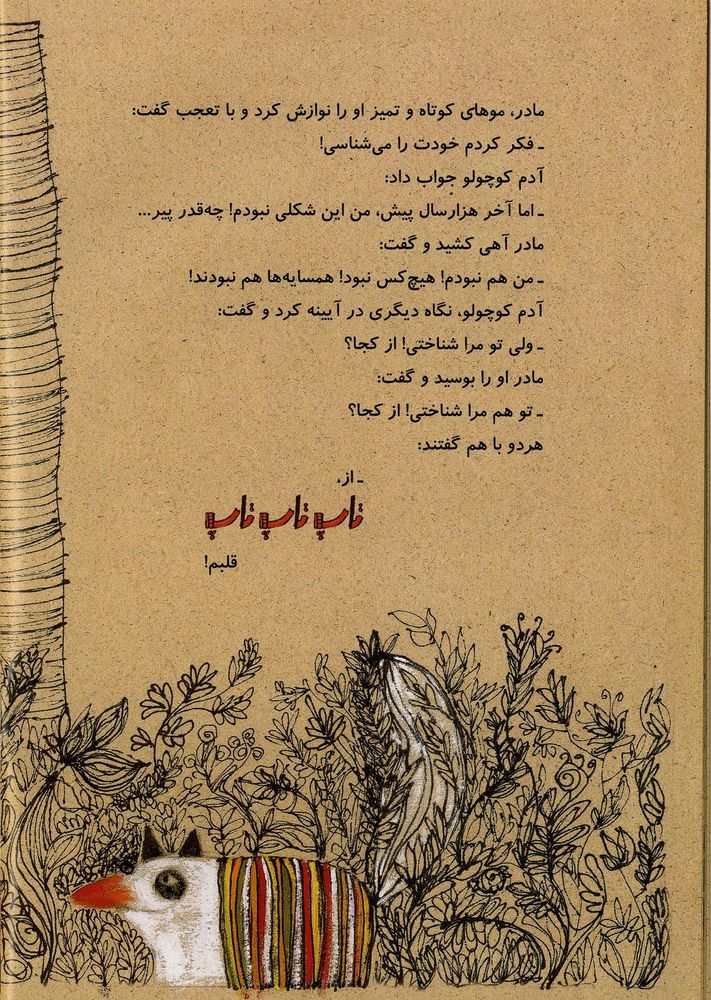 مادر، موهای کوتاه و تمیز او را نوازش کرد و با تعجب گفت:
ـ فکر کردم خودت را می‌شناسی!
آدم کوچولو جواب داد:
ـ اما آخر هزارسال پیش، من این شکلی نبودم! چه‌قدر پیر...
مادر آهی کشید و گفت:
ـ من هم نبودم! هیچ‌کس نبود! همسایه‌ها هم نبودند!
آدم کوچولو، نگاه دیگری در آیینه کرد و گفت:
ـ ولی تو مرا شناختی! از کجا؟
مادر او را بوسید و گفت:
ـ تو هم مرا شناختی! از کجا؟
هردو با هم گفتند:
ـ از،
تاپ تاپ تاپ
قلبم!